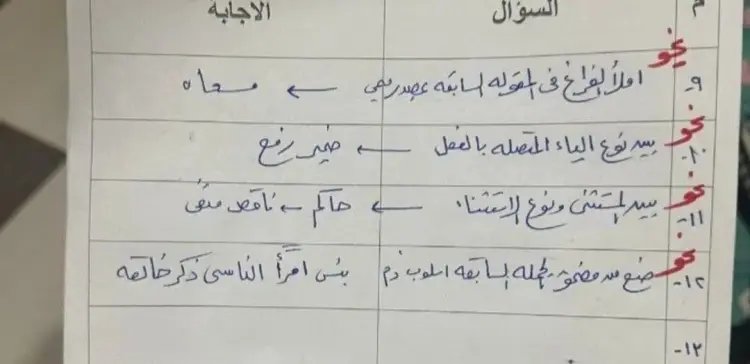 م السؤال الاجابة
نحو
٩- املأ الفراغ فى المقوله السابقه بمصدر ميمي ← مسعاه
نحو
١٠- بين نوع الياء المتصله بالفعل ← ضمير رفع
نحو
١١- بين المستثنى ونوع الاستثناء ← حاكم ← ناقص منفى
نحو
١٢- ضع من مضمون الجمله السابقه اسلوب ذم بئس امرأً الناسى ذكر خالقه
١٣-